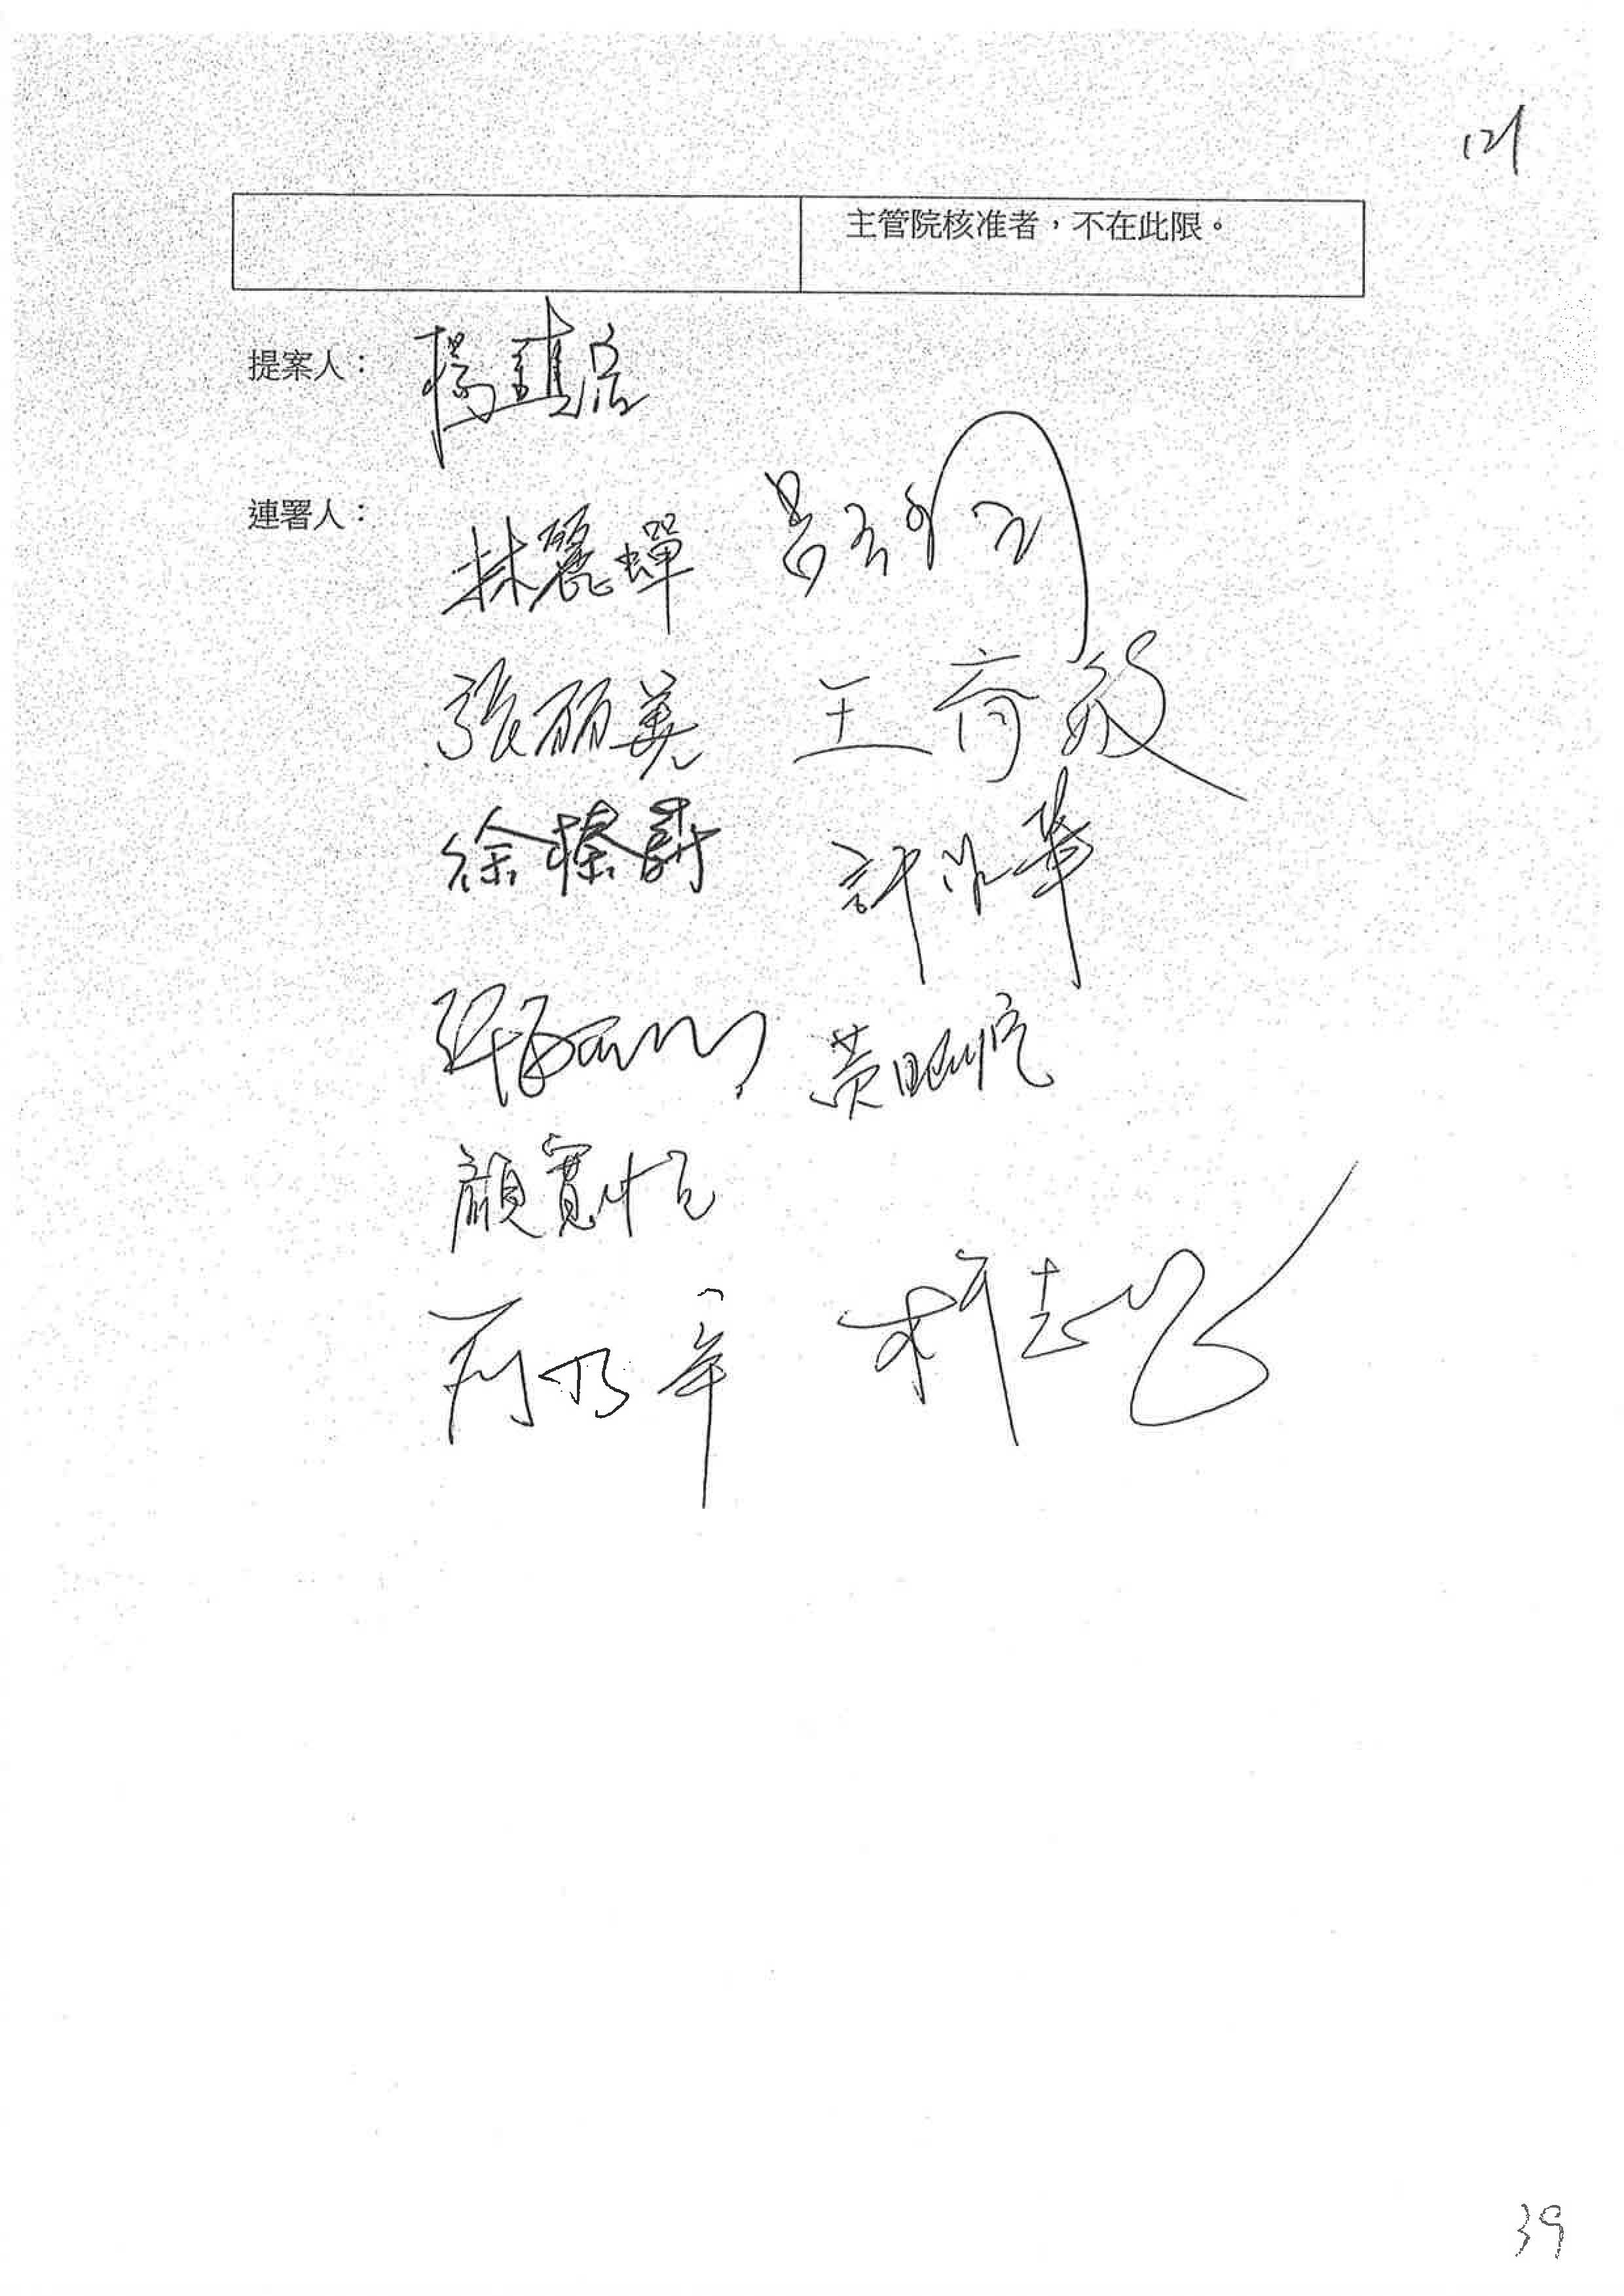 121
主管院核准者，不在此限。
提案人：
楊鎮浯
連署人：
林麗蟬
張麗善 王育敏
徐榛蔚 許淑華
黃昭順
顏寬恒
柯志恩
39